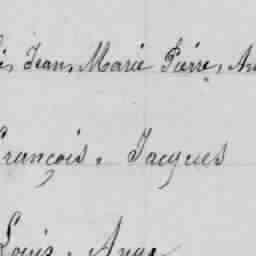 Jean, Marie Pierre, An
François, Jacques
Louis, Ange